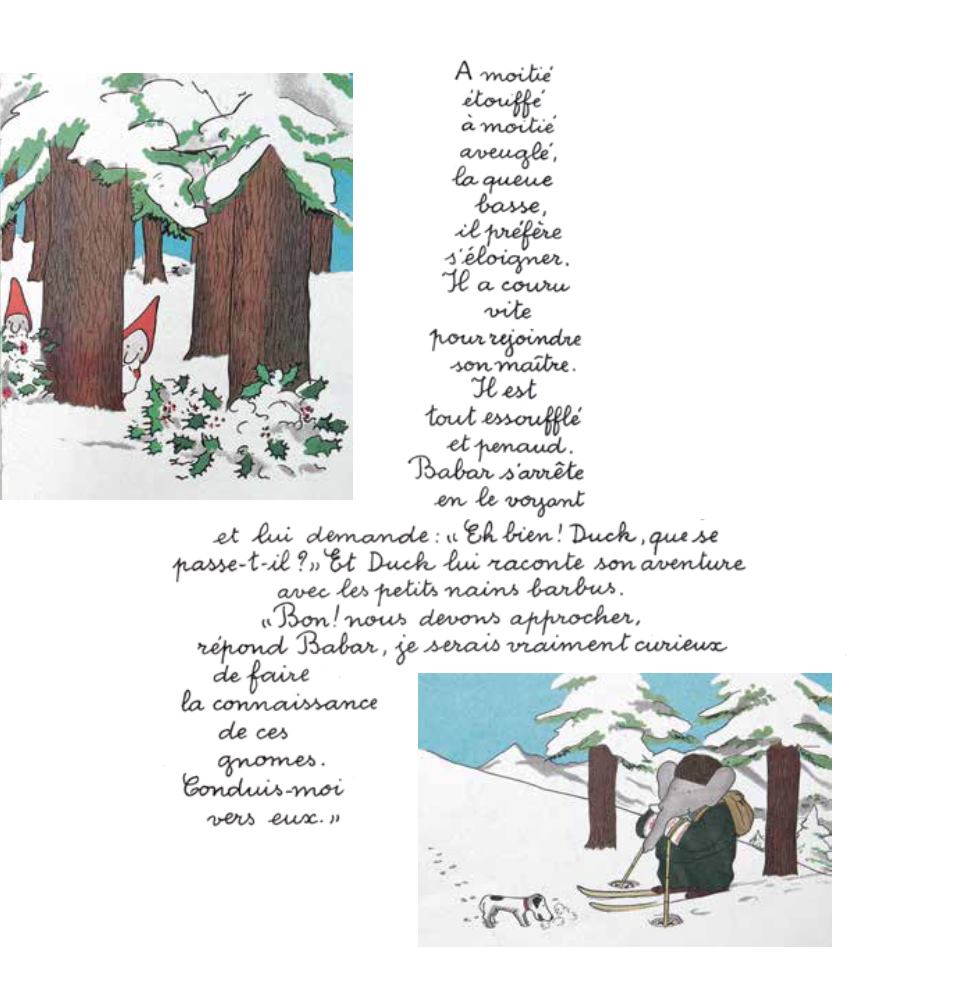 A moitié
étouffé
à moitié
aveuglé,
la queue
basse,
il préfère
s'éloigner.
Il a couru
vite
pour rejoindre
son maître.
Il est
tout essoufflé
et penaud.
Babar s'arrête
en le voyant
et lui demande : « Eh bien ! Duck, que se
passe-t-il ? » Et Duck lui raconte son aventure
avec les petits nains barbus.
« Bon ! nous devons approcher,
répond Babar, je serais vraiment curieux
de faire
la connaissance
de ces
gnomes.
Conduis-moi
vers eux. »